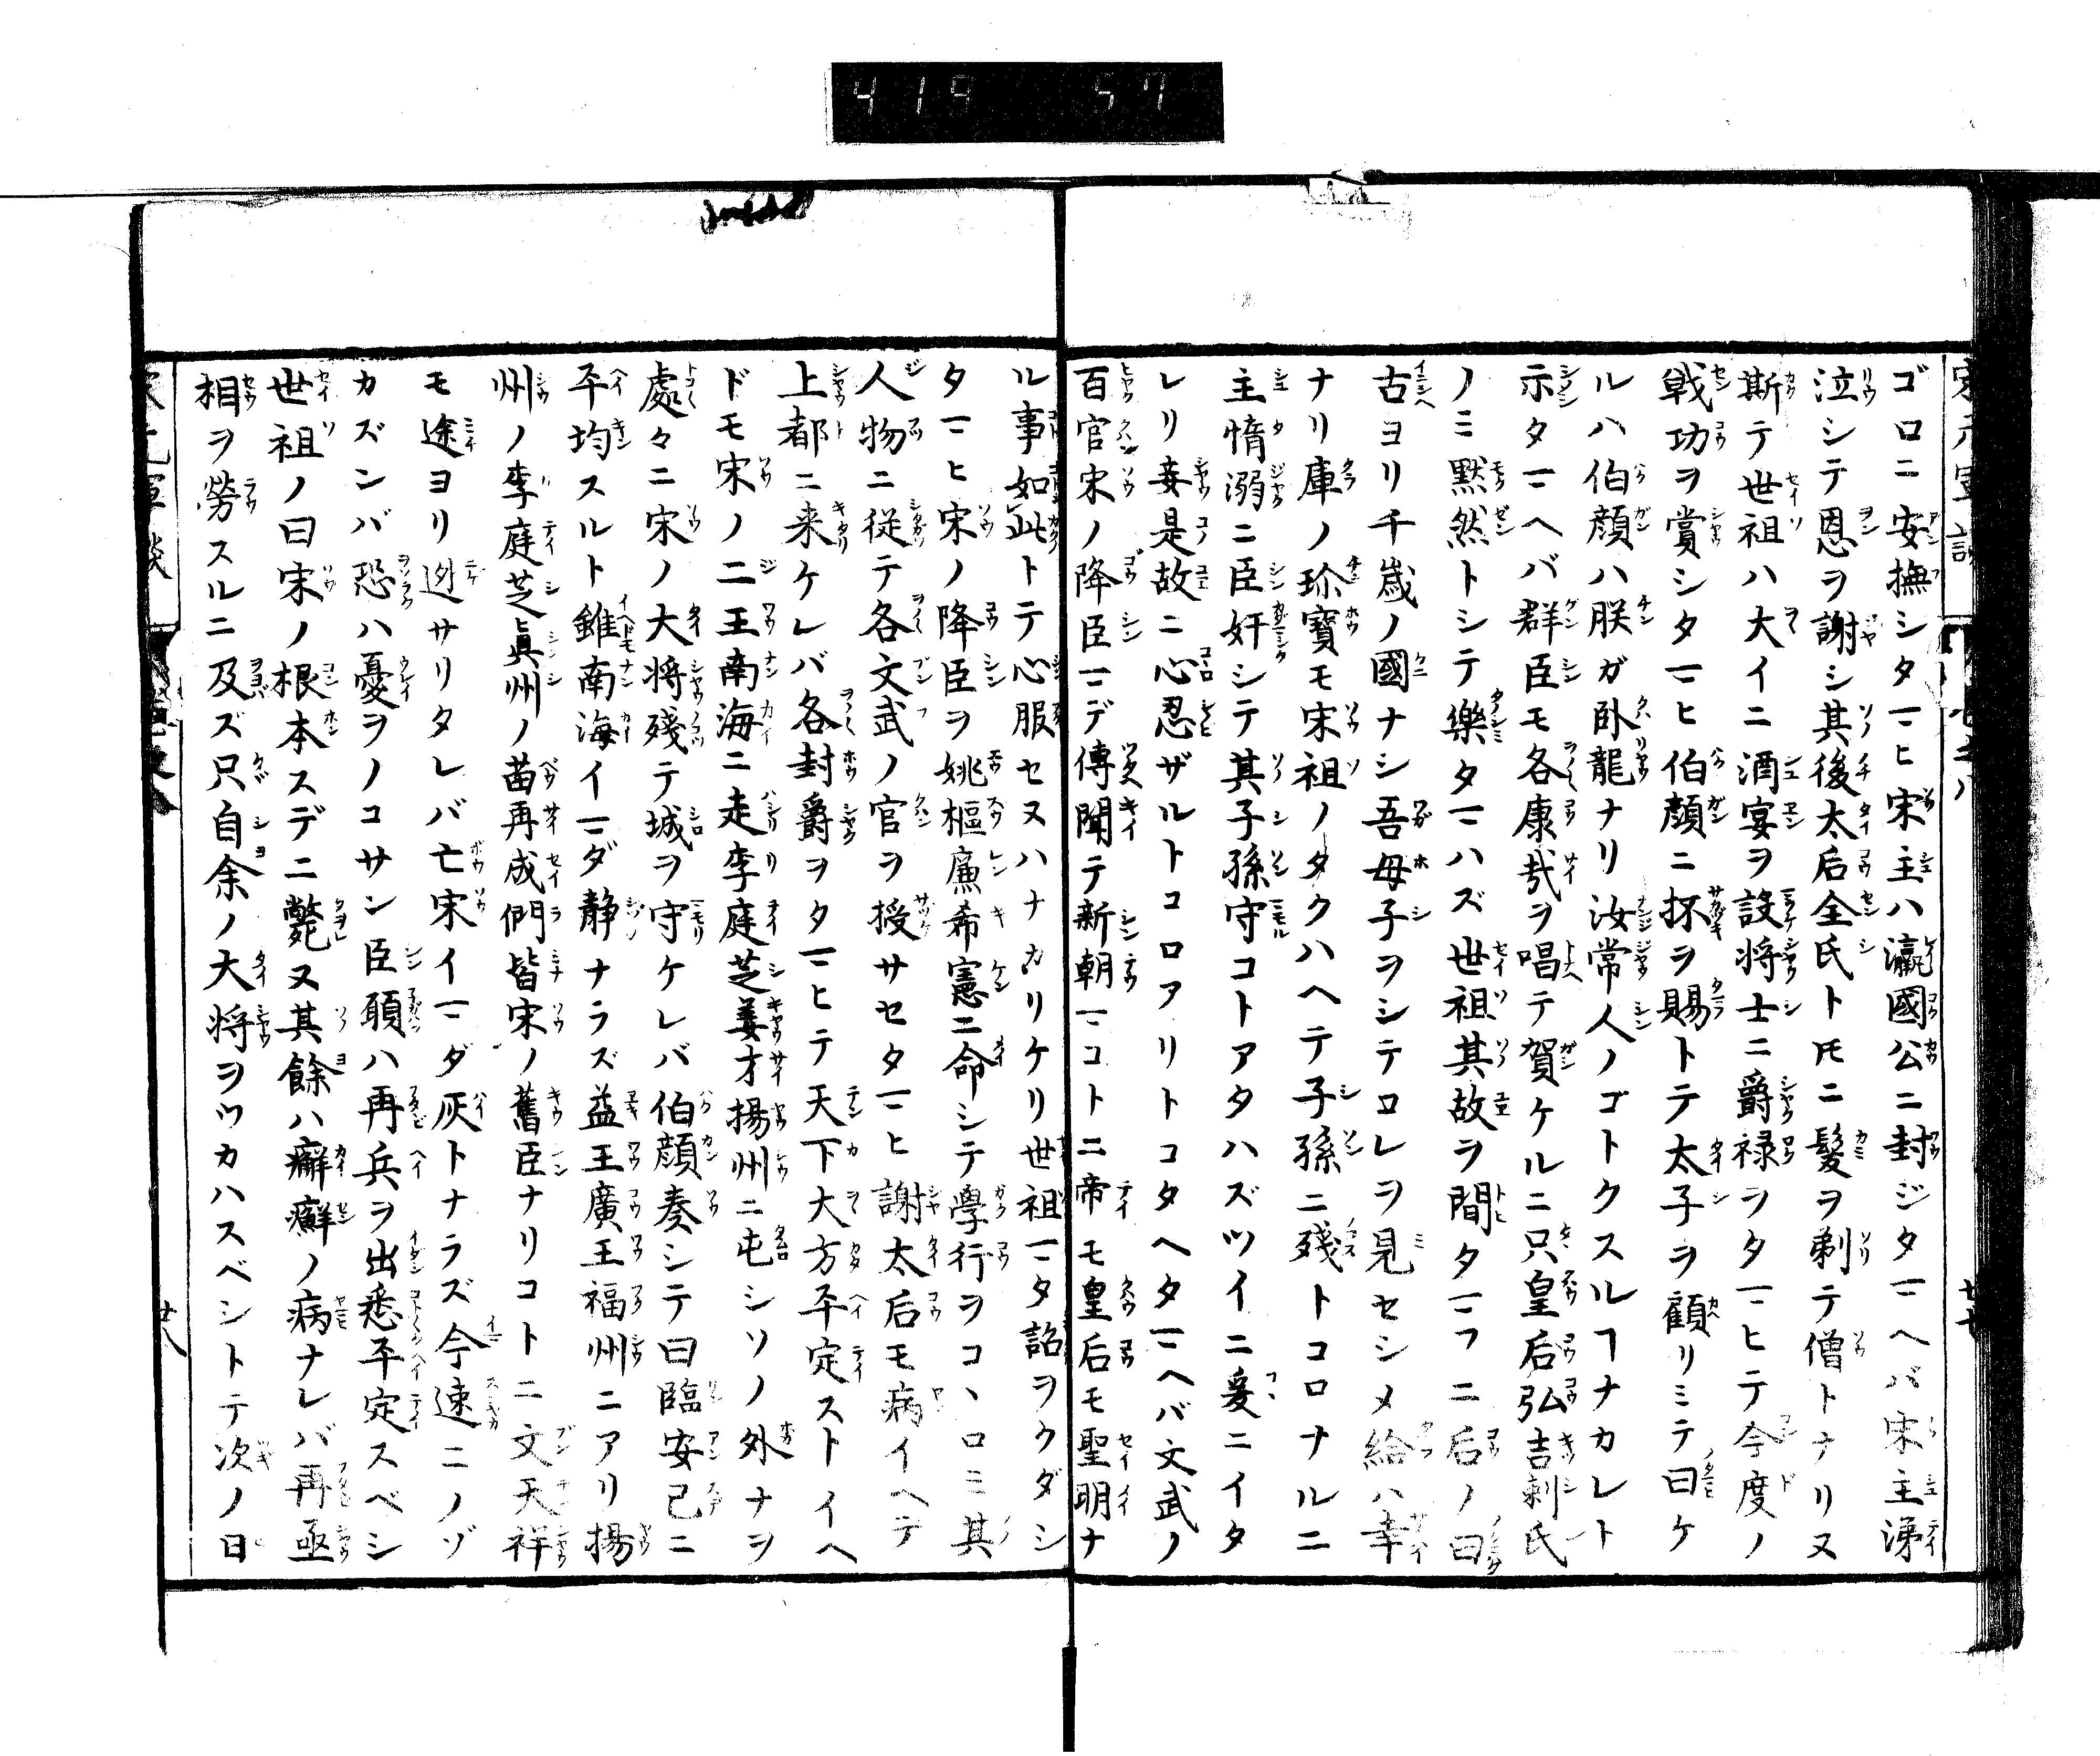 419 57
ゴロニ安撫シタマヒ宋主ハ瀛國公ニ封ジタマヘバ宋主涕
泣シテ恩ヲ謝シ其後太后全氏トモニ髪ヲ剃テ僧トナリヌ
斯テ世祖ハ大イニ酒宴ヲ設将士ニ爵禄ヲタマヒテ今度ノ
戦功ヲ賞シタマヒ伯顔ニ抔ヲ賜トテ太子ヲ顧リミテ曰ケ
ルハ伯顔ハ朕ガ卧龍ナリ汝常人ノゴトクスルヿナカレト
示タマヘバ群臣モ各康哉ヲ唱テ賀ケルニ只皇后弘吉剌氏
ノミ黙然トシテ樂タマハズ世祖其故ヲ問タマフニ后ノ曰
古ヨリ千歳ノ國ナシ吾母子ヲシテコレヲ見セシメ給ハ幸
ナリ庫ノ珎寶モ宋祖ノタクハヘテ子孫ニ残トコロナルニ
主惰溺ニ臣奸シテ其子孫守コトアタハズツイニ爰ニイタ
レリ妾是故ニ心忍ザルトコロアリトコタヘタマヘバ文武ノ
百官宋ノ降臣マデ傳聞テ新朝マコトニ帝モ皇后モ聖明ナ
ル事如此トテ心服セヌハナカリケリ世祖マタ詔ヲクダシ
タマヒ宋ノ降臣ヲ姚樞廉希憲ニ命シテ學行ヲコヽロミ其
人物ニ従テ各文武ノ官ヲ授サセタマヒ謝太后モ病イヘテ
上都ニ来ケレバ各封爵ヲタマヒテ天下大方平定ストイヘ
ドモ宋ノ二王南海ニ走李庭芝姜才揚州ニ屯シソノ外ナヲ
處々ニ宋ノ大将殘テ城ヲ守ケレバ伯顔奏シテ曰臨安已ニ
平均スルト雖南海イマダ静ナラズ益王廣王福州ニアリ揚
州ノ李庭芝眞州ノ苗再成們皆宋ノ舊臣ナリコトニ文天祥
モ途ヨリ迯サリタレバ亡宋イマダ灰トナラズ今速ニノゾ
カズンバ恐ハ憂ヲノコサン臣願ハ再兵ヲ出悉平定スベシ
世祖ノ曰宋ノ根本スデニ斃ヌ其餘ハ癬癬ノ病ナレバ再亟
相ヲ勞スルニ及ズ只自余ノ大将ヲツカハスベシトテ次ノ日
廿八